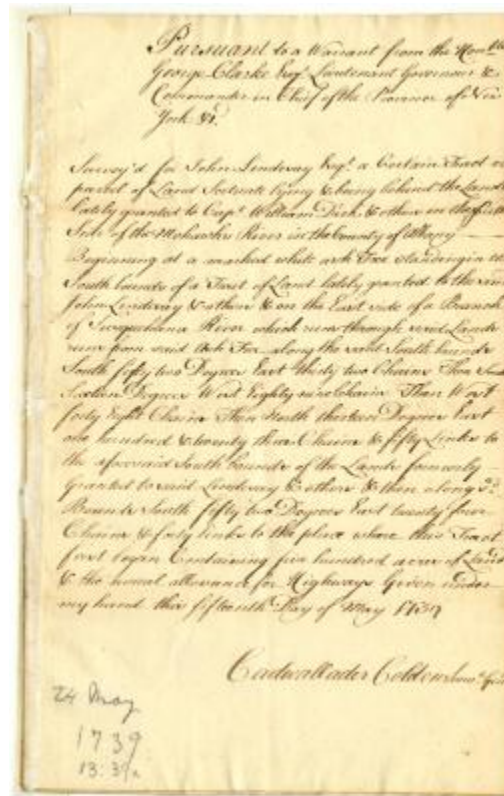 Pursuant to a Warrant from the Hon.ble
George Clarke Esq.r Lieutenant Governour &
Commander in Chief of the Province of New
York &c.
Survey'd for John Lindesay Esq.r a Certain Tract or
parcel of Land Scituate lying & being behind the Land
lately granted to Cap.t William Dick & others on the South
Side of the Mohawks River in the County of Albany
Beginning at a marked white ash Tree standing in the
South bounds of a Tract of Land lately granted to the said
John Lindesay & others & on the East side of a Branch
of Susquehana River which runs through said Lands
runs from said Ash Tree along the said South bounds
South fifty two Degrees East thirty two Chains Then South
Sixteen Degrees West Eighty nine Chains Then West
forty Eight Chains Then North thirteen Degrees East
one hundred & twenty three Chains & fifty Links to
the aforesaid South bounds of the Lands formerly
Granted to said Lindesay & others & then along s.d
Bounds South fifty two Degrees East twenty four
Chains & forty links to the place where this Tract
first began Containing five hundred acres of Land
& the usual allowance for Highways Given under
my hand this fifteenth Day of May 1739
Cadwallader Colden
24 May
1739
13:39